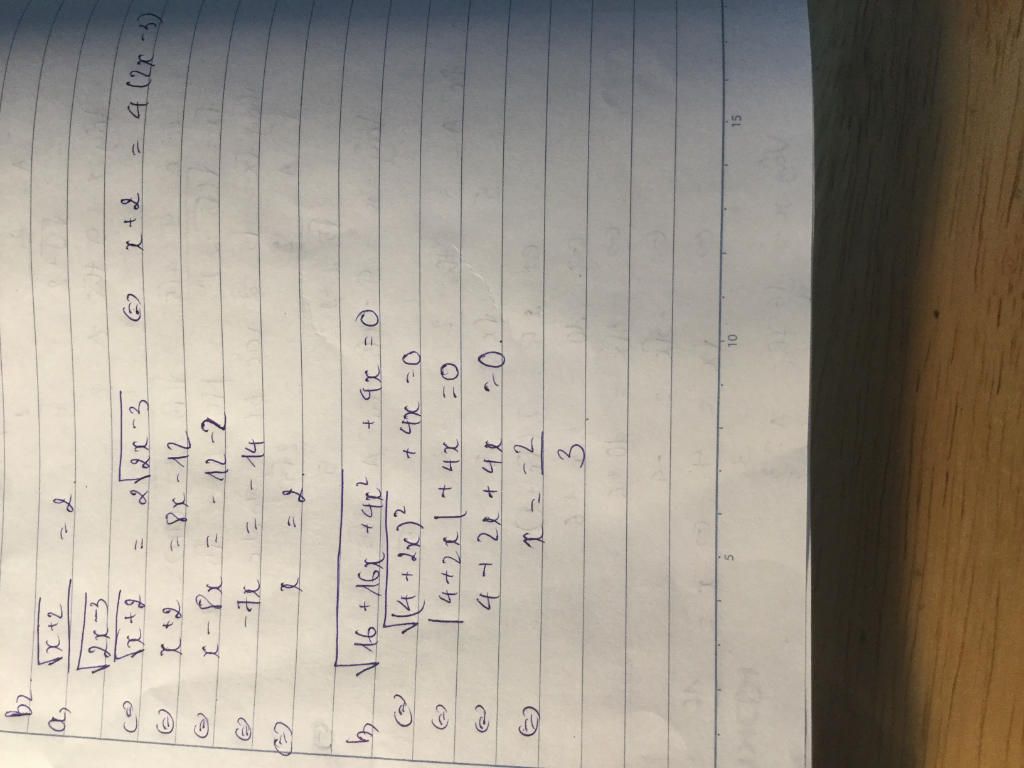 b2
a, √(x+2) / √(2x-3) = 2
⇔ √(x+2) = 2√(2x-3) ⇔ x+2 = 4(2x-3)
⇔ x+2 = 8x-12
⇔ x-8x = -12-2
⇔ -7x = -14
⇔ x = 2
b, √(16+16x+4x²) + 4x = 0
⇔ √((4+2x)²) + 4x = 0
⇔ |4+2x| + 4x = 0
⇔ 4+2x+4x = 0
⇔ x = -2/3
5 10 15